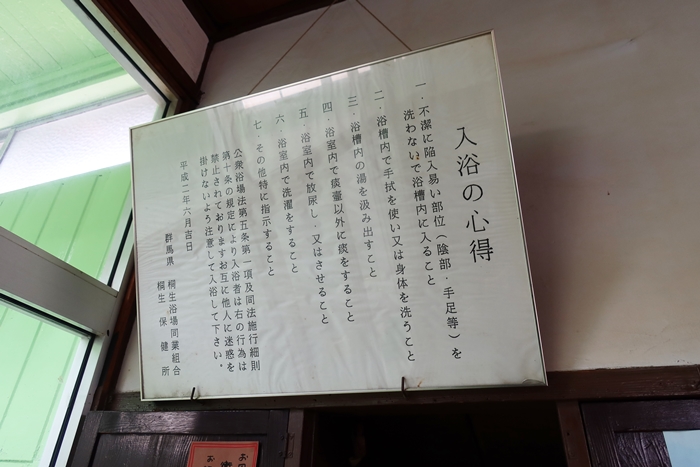 入浴の心得
一．不潔に陥入易い部位（陰部．手足等）を
洗わないで浴槽内に入ること
二．浴槽内で手拭を使い又は身体を洗うこと
三．浴槽内の湯を汲み出すこと
四．浴室内で痰壷以外に痰をすること
五．浴室内で放尿し．又はさせること
六．浴室内で洗濯をすること
七．その他特に指示すること
公衆浴場法第五条第一項及同法施行細則
第十条の規定により入浴者は右の行為は
禁止されておりますお互に他人に迷惑を
掛けないよう注意して入浴して下さい。
平成二年六月吉日
群馬県
桐生浴場同業組合
桐生保健所